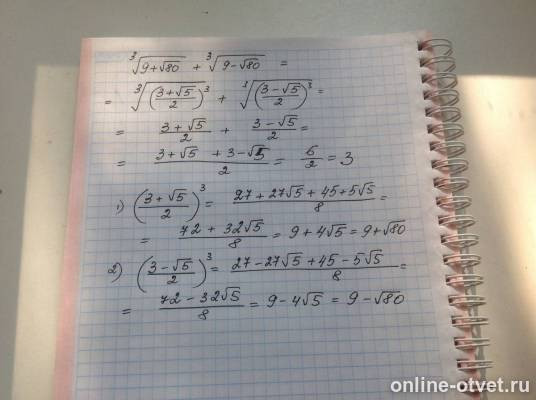 ∛(9+√80) + ∛(9-√80) =
= ∛((3+√5)/2)³ + ∛((3-√5)/2)³ =
= (3+√5)/2 + (3-√5)/2 =
= (3+√5 +3-√5)/2 = 6/2 = 3
1) ((3+√5)/2)³ = (27+27√5+45+5√5)/8 =
= (72+32√5)/8 = 9+4√5 = 9+√80
2) ((3-√5)/2)³ = (27-27√5+45-5√5)/8 =
= (72-32√5)/8 = 9-4√5 = 9-√80
online-otvet.ru